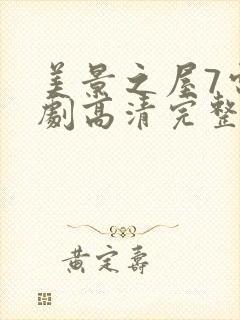 美景之屋7
劇高清完整
黄定壽